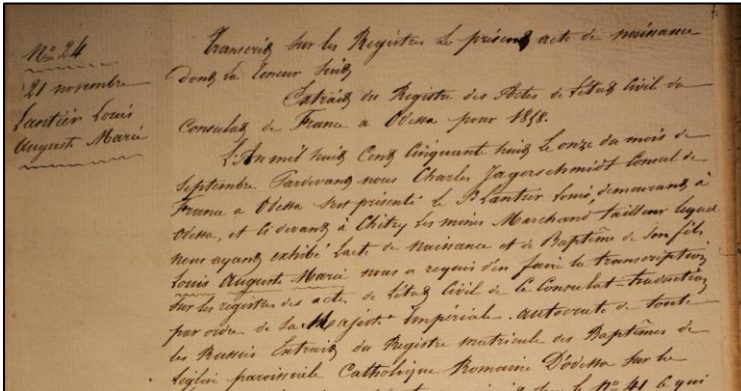 N° 24
21 novembre
Lantier Louis
Auguste Marie
Transcrit sur les Registres le présent acte de naissance
dont la teneur suit
Extrait du Registre des Actes de l'état Civil du
Consulat de France a Odessa pour 1858.
L'An mil huit Cent Cinquante huit le onze du mois de
Septembre Pardevant nous Charles Jagerschmidt Consul de
France a Odessa s'est présenté le S. Lantier Louis, demeurant à
Odessa, et ci devant à Chitry les mines Marchand tailleur lequel
nous ayant exhibé l'acte de naissance et de Baptême de son fils
Louis Auguste Marie nous a requis d'en faire la transcription
sur les registres des actes de l'état Civil de ce Consulat - traduction
par ordre de Sa Majesté Impériale. autocrate de toute
les Russies Extrait du Registre matricule des Baptêmes de
l'église paroissiale Catholique Romaine D'odessa sur le
sur le N° 41 ce qui